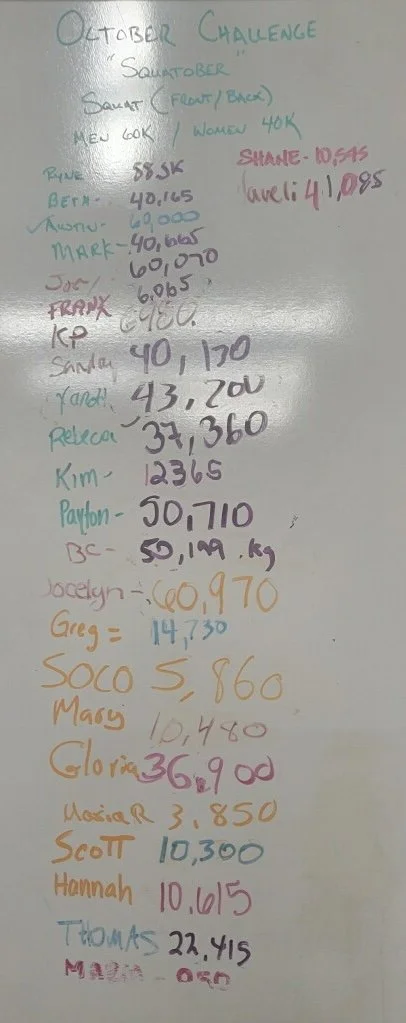 OCTOBER CHALLENGE
"SQUATOBER"
SQUAT (FRONT/BACK)
MEN 60K / WOMEN 40K
SHANE - 10,545
Laveli 41,085
RYNE 88.5K
BETH - 40,165
✓AUSTIN - 60,000
MARK - 40,665
Joey 60,070
FRANK 6,065
KP 6480.
Sandy 40,170
Yaroth. 43,200
Rebeca 37,360
Kim - 12365
Payton - 50,710
BC - 50,199 .kg
Jocelyn - 60,970
Greg = 14,730
SOCO 5,860
Mary 10,480
Gloria 36,900
Maria R 3,850
SCOTT 10,300
Hannah 10,615
THOMAS 22,415